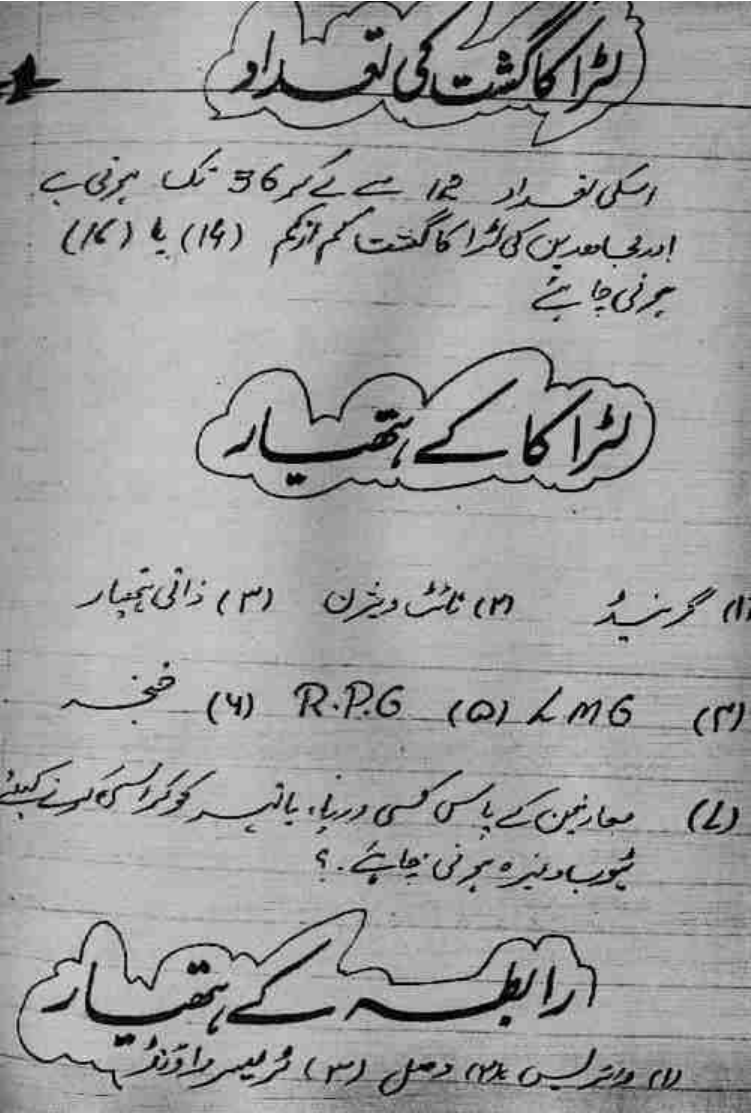 لڑاکا گشت کی تعداد
اسکی تعداد 12 سے لے کر 36 تک ہوتی ہے
اور مجاہدین کی لڑاکا گشت کم از کم (14) یا (16)
ہونی چاہئے
لڑاکا کے ہتھیار
(۱) گرنیڈ (۲) نائٹ ویژن (۳) ذاتی ہتھیار
(۴) LMG (۵) R.P.G (۶) خنجر
(۷) معاونین کے پاس کسی دریا، یا نہر کو کراس کرنے کیلئے
ٹیوب وغیرہ ہونی چاہئے۔؟
رابطہ کے ہتھیار
(۱) وائرلیس (۲) وصل (۳) ٹریسر راؤنڈ